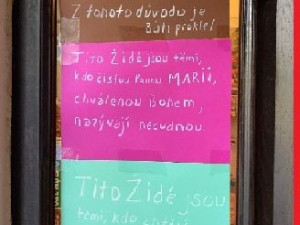 Z tohoto důvodu je
Bůh proklel
Tito Židé jsou těmi,
kdo čistou Pannu MARII,
chválenou Bohem,
nazývají necudnou.
Tito Židé jsou
těmi, kdo